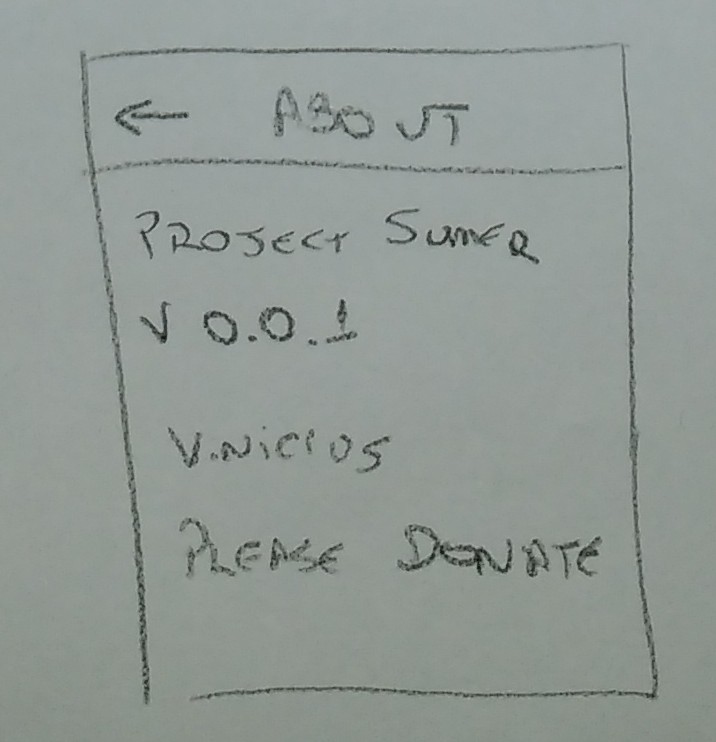 ← ABOUT
PROJECT SUMER
V 0.0.1
VINICIUS
PLEASE DONATE